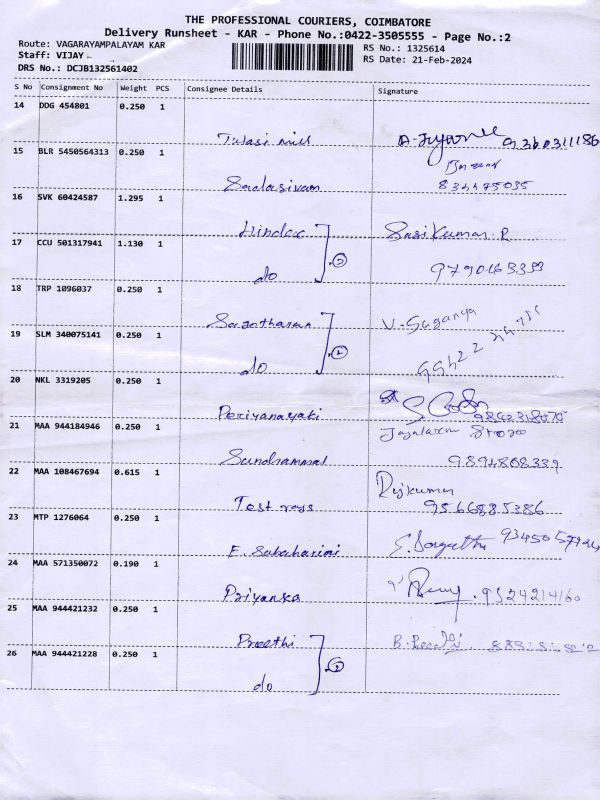 THE PROFESSIONAL COURIERS, COIMBATORE
Delivery Runsheet - KAR - Phone No.:0422-3505555 - Page No.:2
Route: VAGARAYAMPALAYAM KAR
RS No.: 1325614
Staff: VIJAY
RS Date: 21-Feb-2024
DRS No.: DCJB132561402
S No Consignment No Weight PCS Consignee Details Signature
14 DDG 454801 0.250 1
Tulasi mill
15 BLR 5450564313 0.250 1
Sadasivam
834475035
16 SVK 60424587 1.295 1
Hindex
Sasikumar. R
17 CCU 501317941 1.130 1
do
9790163333
18 TRP 1096037 0.250 1
V. Suganya
19 SLM 340075141 0.250 1
do
20 NKL 3319205 0.250 1
Periyanayaki
21 MAA 944184946 0.250 1
9894808339
22 MAA 108467694 0.615 1
Rajkumar
Test rays
9566885386
23 MTP 1276064 0.250 1
24 MAA 571350072 0.190 1
Priyanka
9524214160
25 MAA 944421232 0.250 1
Preethi
26 MAA 944421228 0.250 1
do